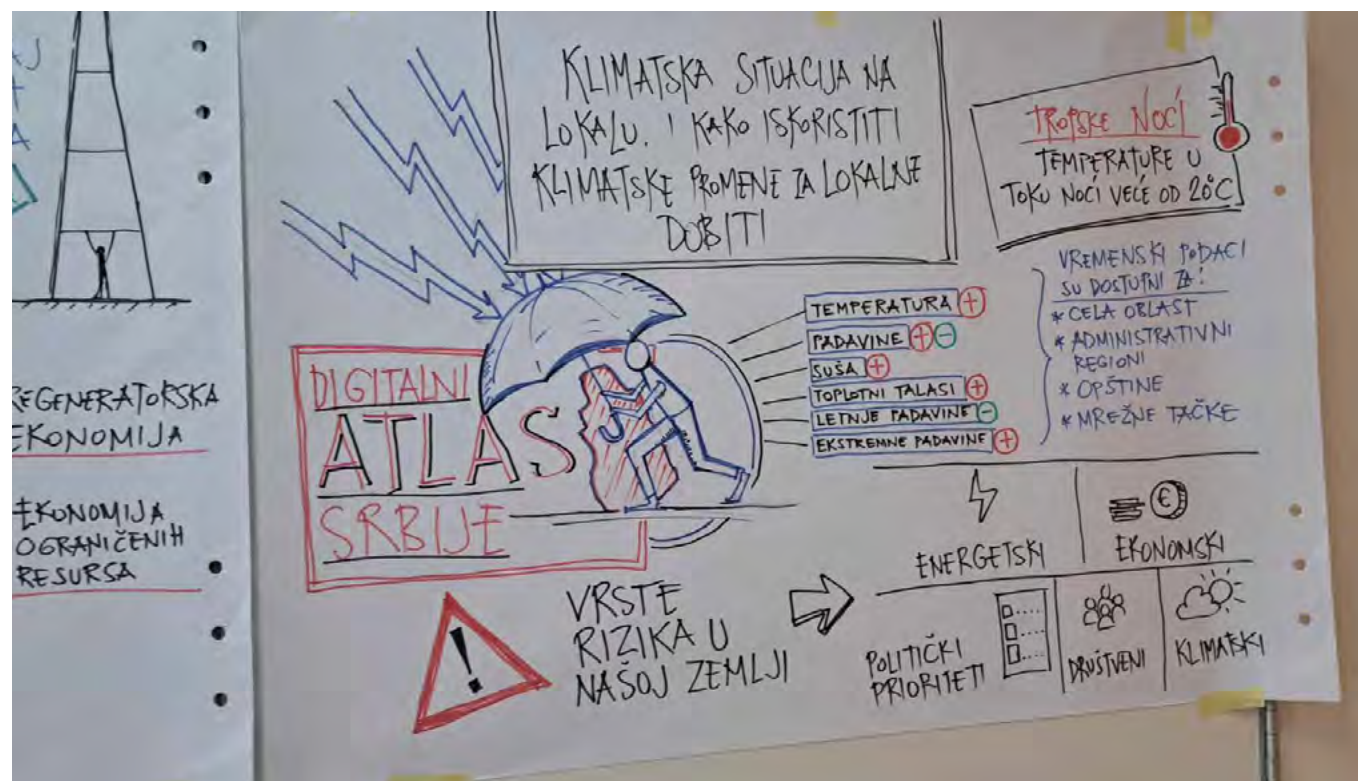 REGENERATORSKA
EKONOMIJA
EKONOMIJA
OGRANIČENIH
RESURSA
KLIMATSKA SITUACIJA NA
LOKALU. I KAKO ISKORISTITI
KLIMATSKE PROMENE ZA LOKALNE
DOBITI
TROPSKE NOĆI
TEMPERATURE U
TOKU NOĆI VEĆE OD 20°C
DIGITALNI
ATLAS
SRBIJE
TEMPERATURA +
PADAVINE + -
SUŠA +
TOPLOTNI TALASI +
LETNJE PADAVINE -
EKSTREMNE PADAVINE +
VREMENSKI PODACI
SU DOSTUPNI ZA:
* CELA OBLAST
* ADMINISTRATIVNI
REGIONI
* OPŠTINE
* MREŽNE TAČKE
!
VRSTE
RIZIKA U
NAŠOJ ZEMLJI
ENERGETSKI
€
EKONOMSKI
POLITIČKI
PRIORITETI
DRUŠTVENI
KLIMATSKI